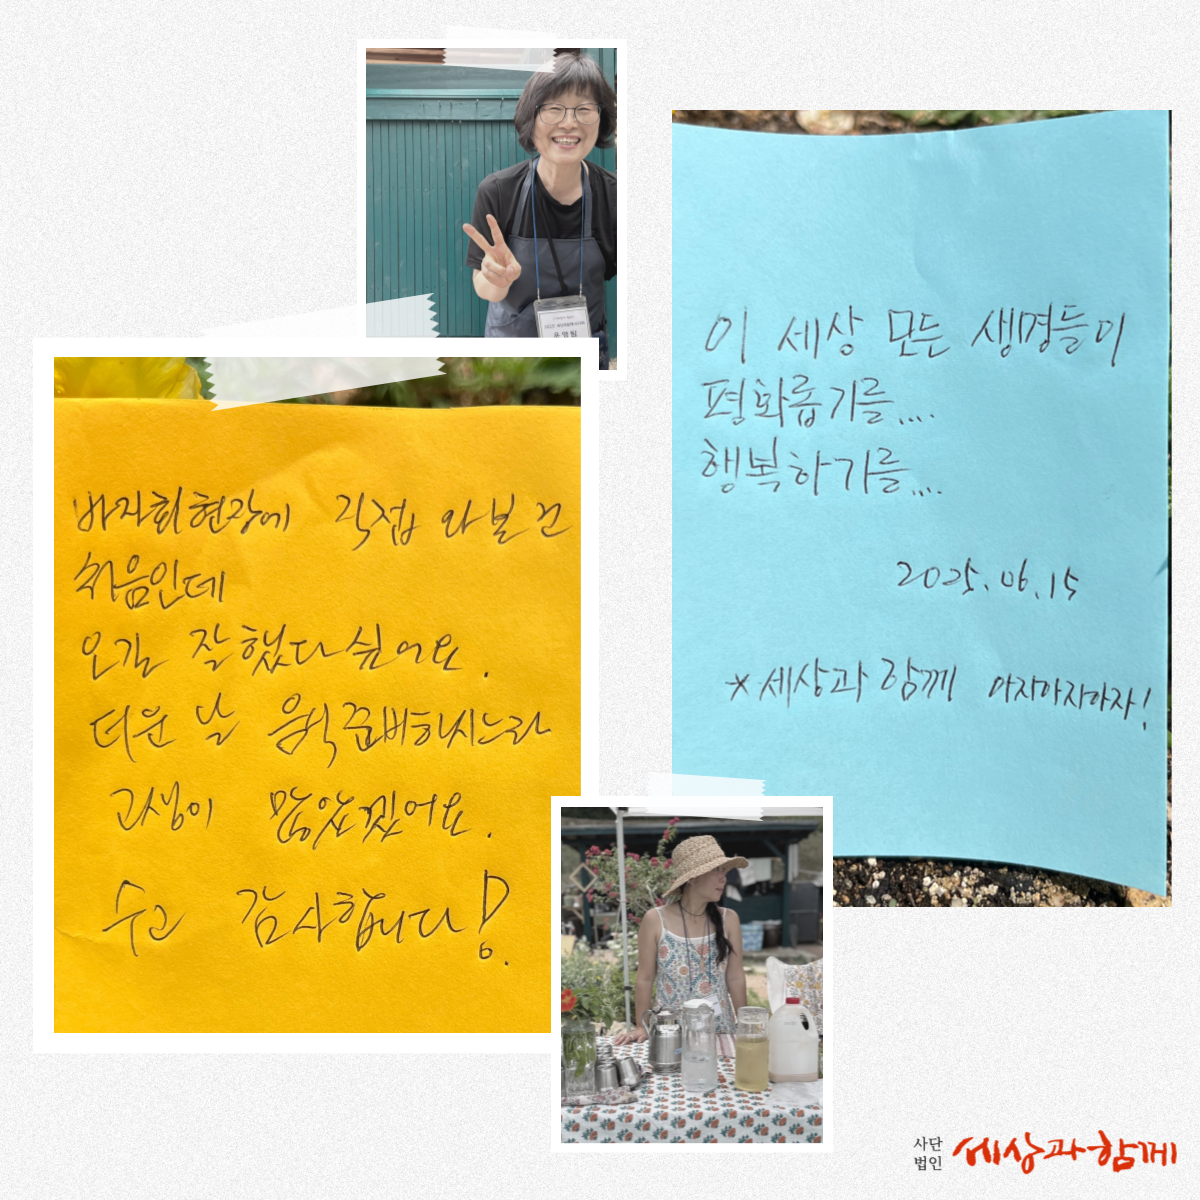 운영팀
바자회 현장에 직접 와보건
처음인데
오길 잘했다 싶어요.
더운 날 음식준비하시느라
고생이 많았겠어요.
수고 감사합니다!
이 세상 모든 생명들이
평화롭기를....
행복하기를....
2025.06.15
*세상과 함께 아자아자아자!
사단
법인
세상과함께